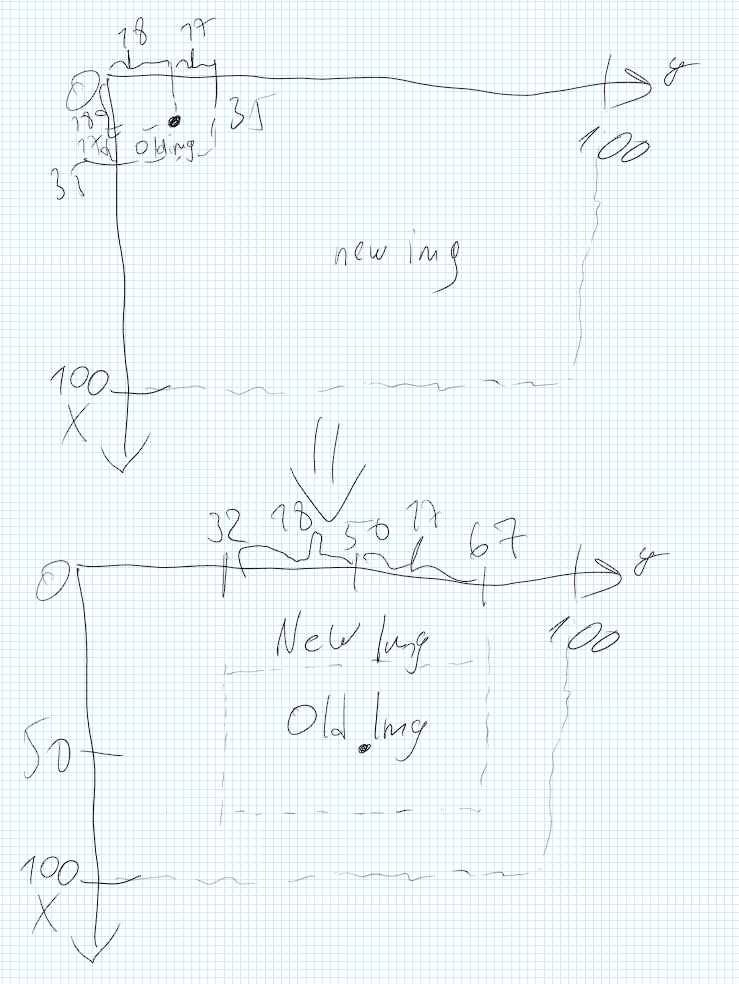 18 17
0 y
18
17 Old img 35
35 100
new img
100
X
32 18 50 17 67
0 y
New Img 100
Old Img
50
100
X